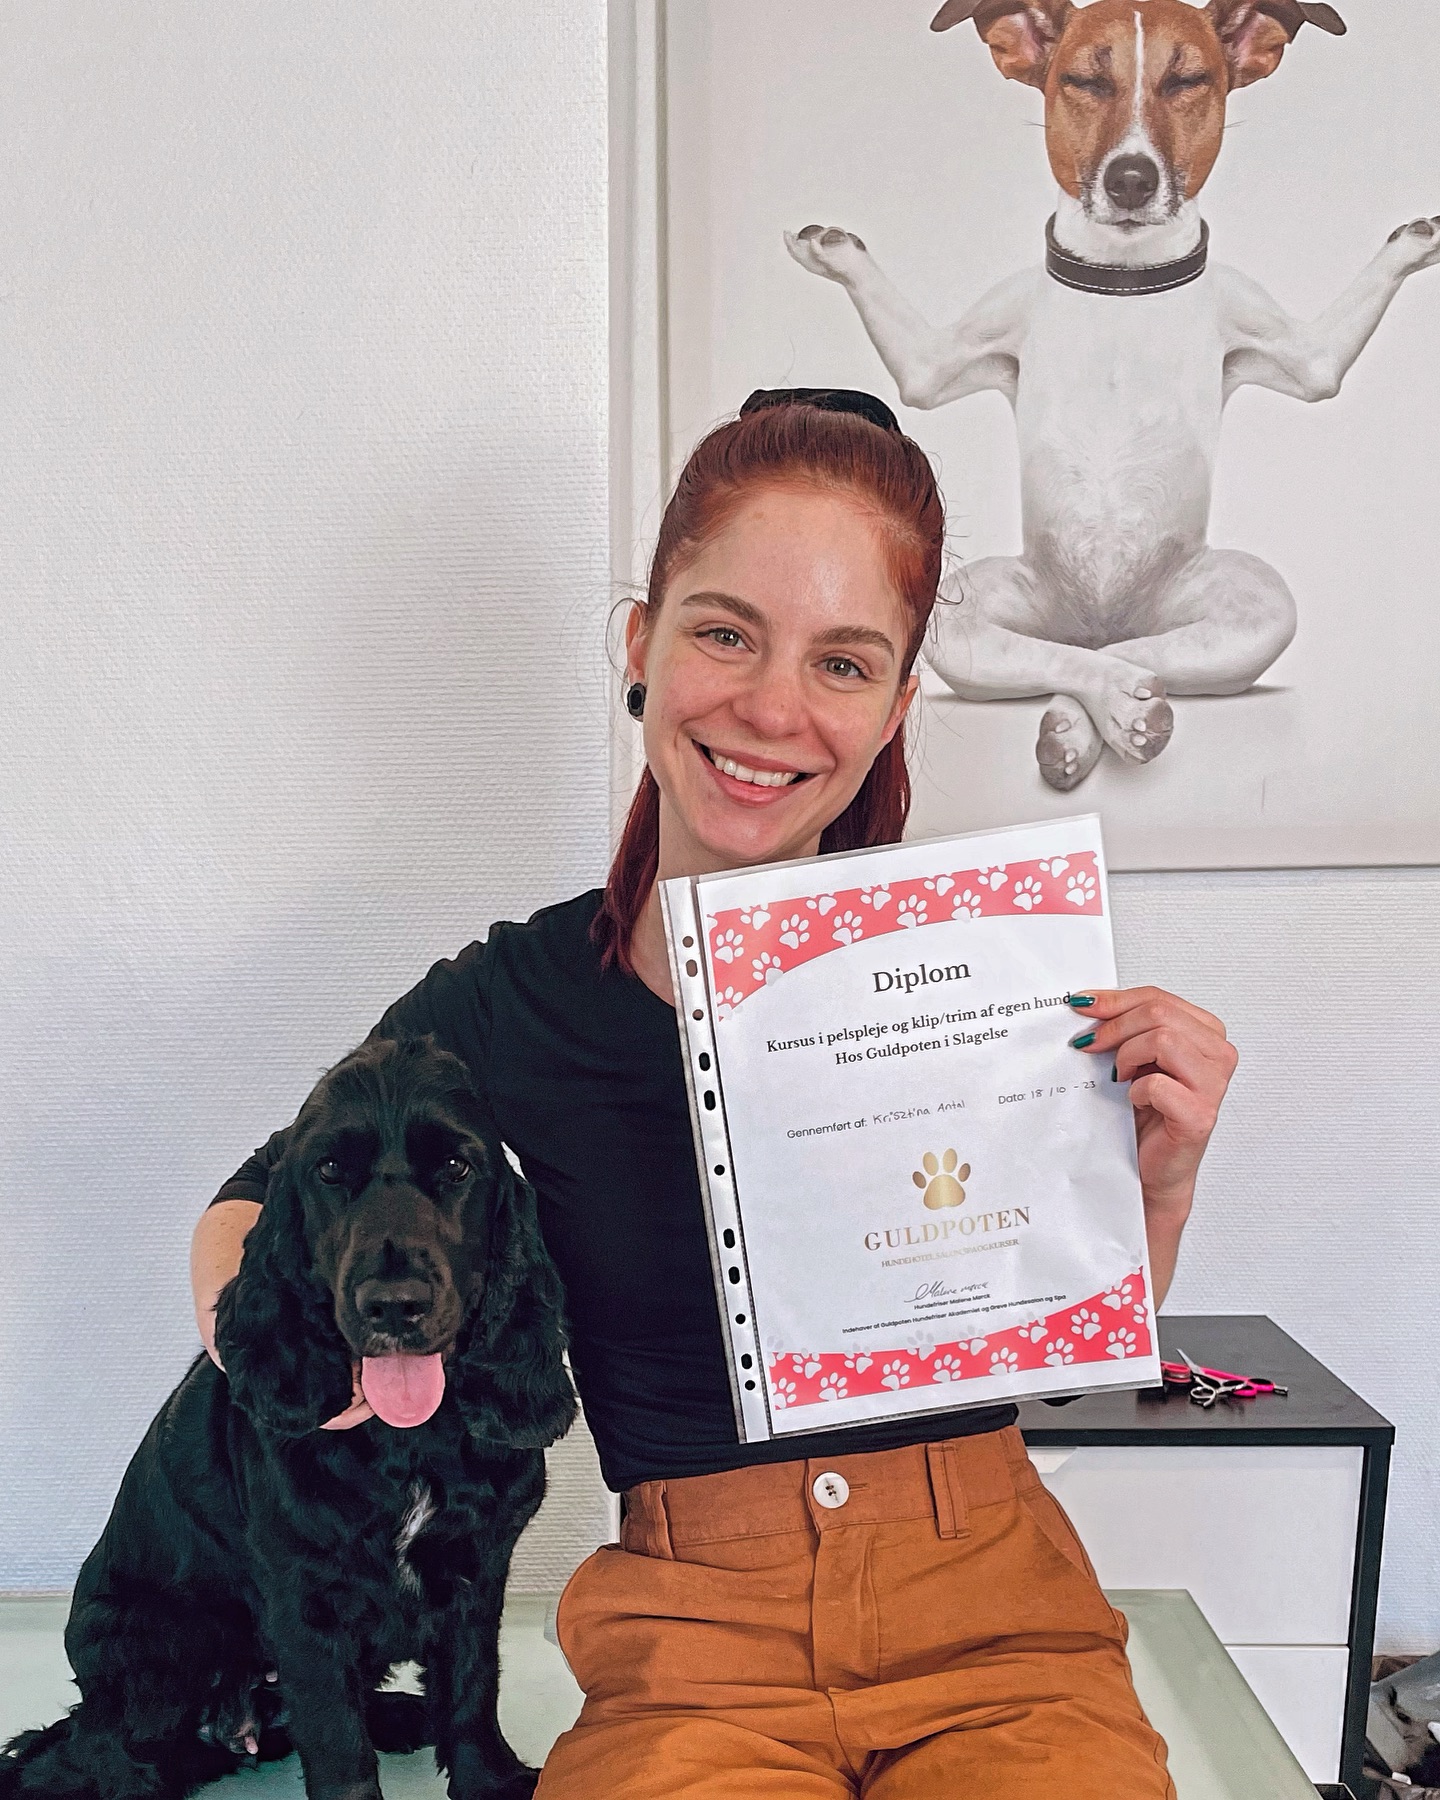 Diplom
Kursus i pelspleje og klip/trim af egen hund
Hos Guldpoten i Slagelse
Gennemført af: Krisztina Antal Dato: 18 / 10 - 23
GULDPOTEN
HUNDEHOTEL, SALON, SPA OG KURSER
Malene Mørck
Hundefrisør Malene Mørck
Indehaver af Guldpoten Hundefrisør Akademiet og Greve Hundesalon og Spa